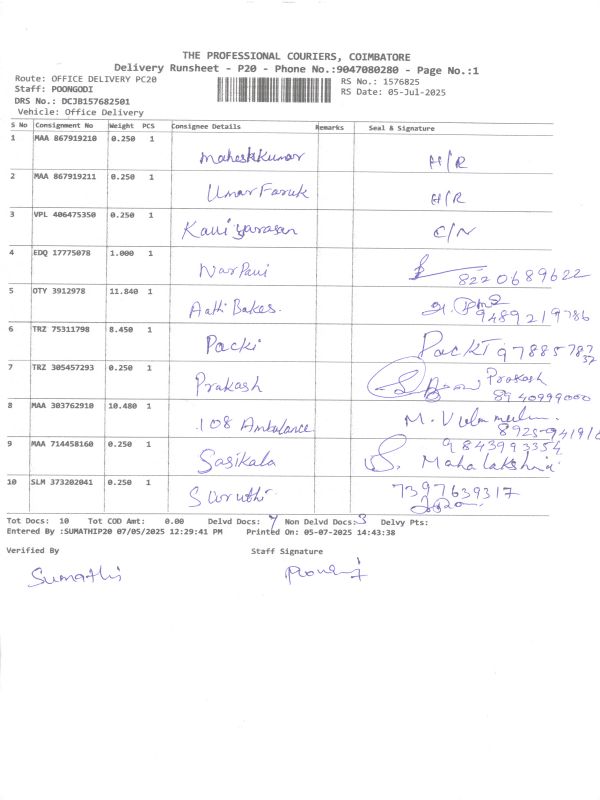 THE PROFESSIONAL COURIERS, COIMBATORE
Delivery Runsheet - P20 - Phone No.:9047080280 - Page No.:1
Route: OFFICE DELIVERY PC20
Staff: POONGODI
DRS No.: DCJB157682501
Vehicle: Office Delivery
RS No.: 1576825
RS Date: 05-Jul-2025
S No Consignment No Weight PCS Consignee Details Remarks Seal & Signature
1 MAA 867919210 0.250 1 Maheshkumar H/R
2 MAA 867919211 0.250 1 Umar Faruk H/R
3 VPL 406475350 0.250 1 Kaviyarasan C/N
4 EDQ 17775078 1.000 1 8220689622
5 OTY 3912978 11.840 1 Aathi Bakes. 9489219786
6 TRZ 75311798 8.450 1 Packi Packi 9788578737
7 TRZ 305457293 0.250 1 Prakash Prakash
8940999000
8 MAA 303762910 10.480 1 108 Ambulance
9 MAA 714458160 0.250 1 Sasikala 9843993354
S. Mahalakshmi
10 SLM 373202041 0.250 1 Sworuthi 7397639317
Tot Docs: 10 Tot COD Amt: 0.00 Delvd Docs: 7 Non Delvd Docs: 3 Delvy Pts:
Entered By :SUMATHIP20 07/05/2025 12:29:41 PM Printed On: 05-07-2025 14:43:38
Verified By Staff Signature
Sumathi